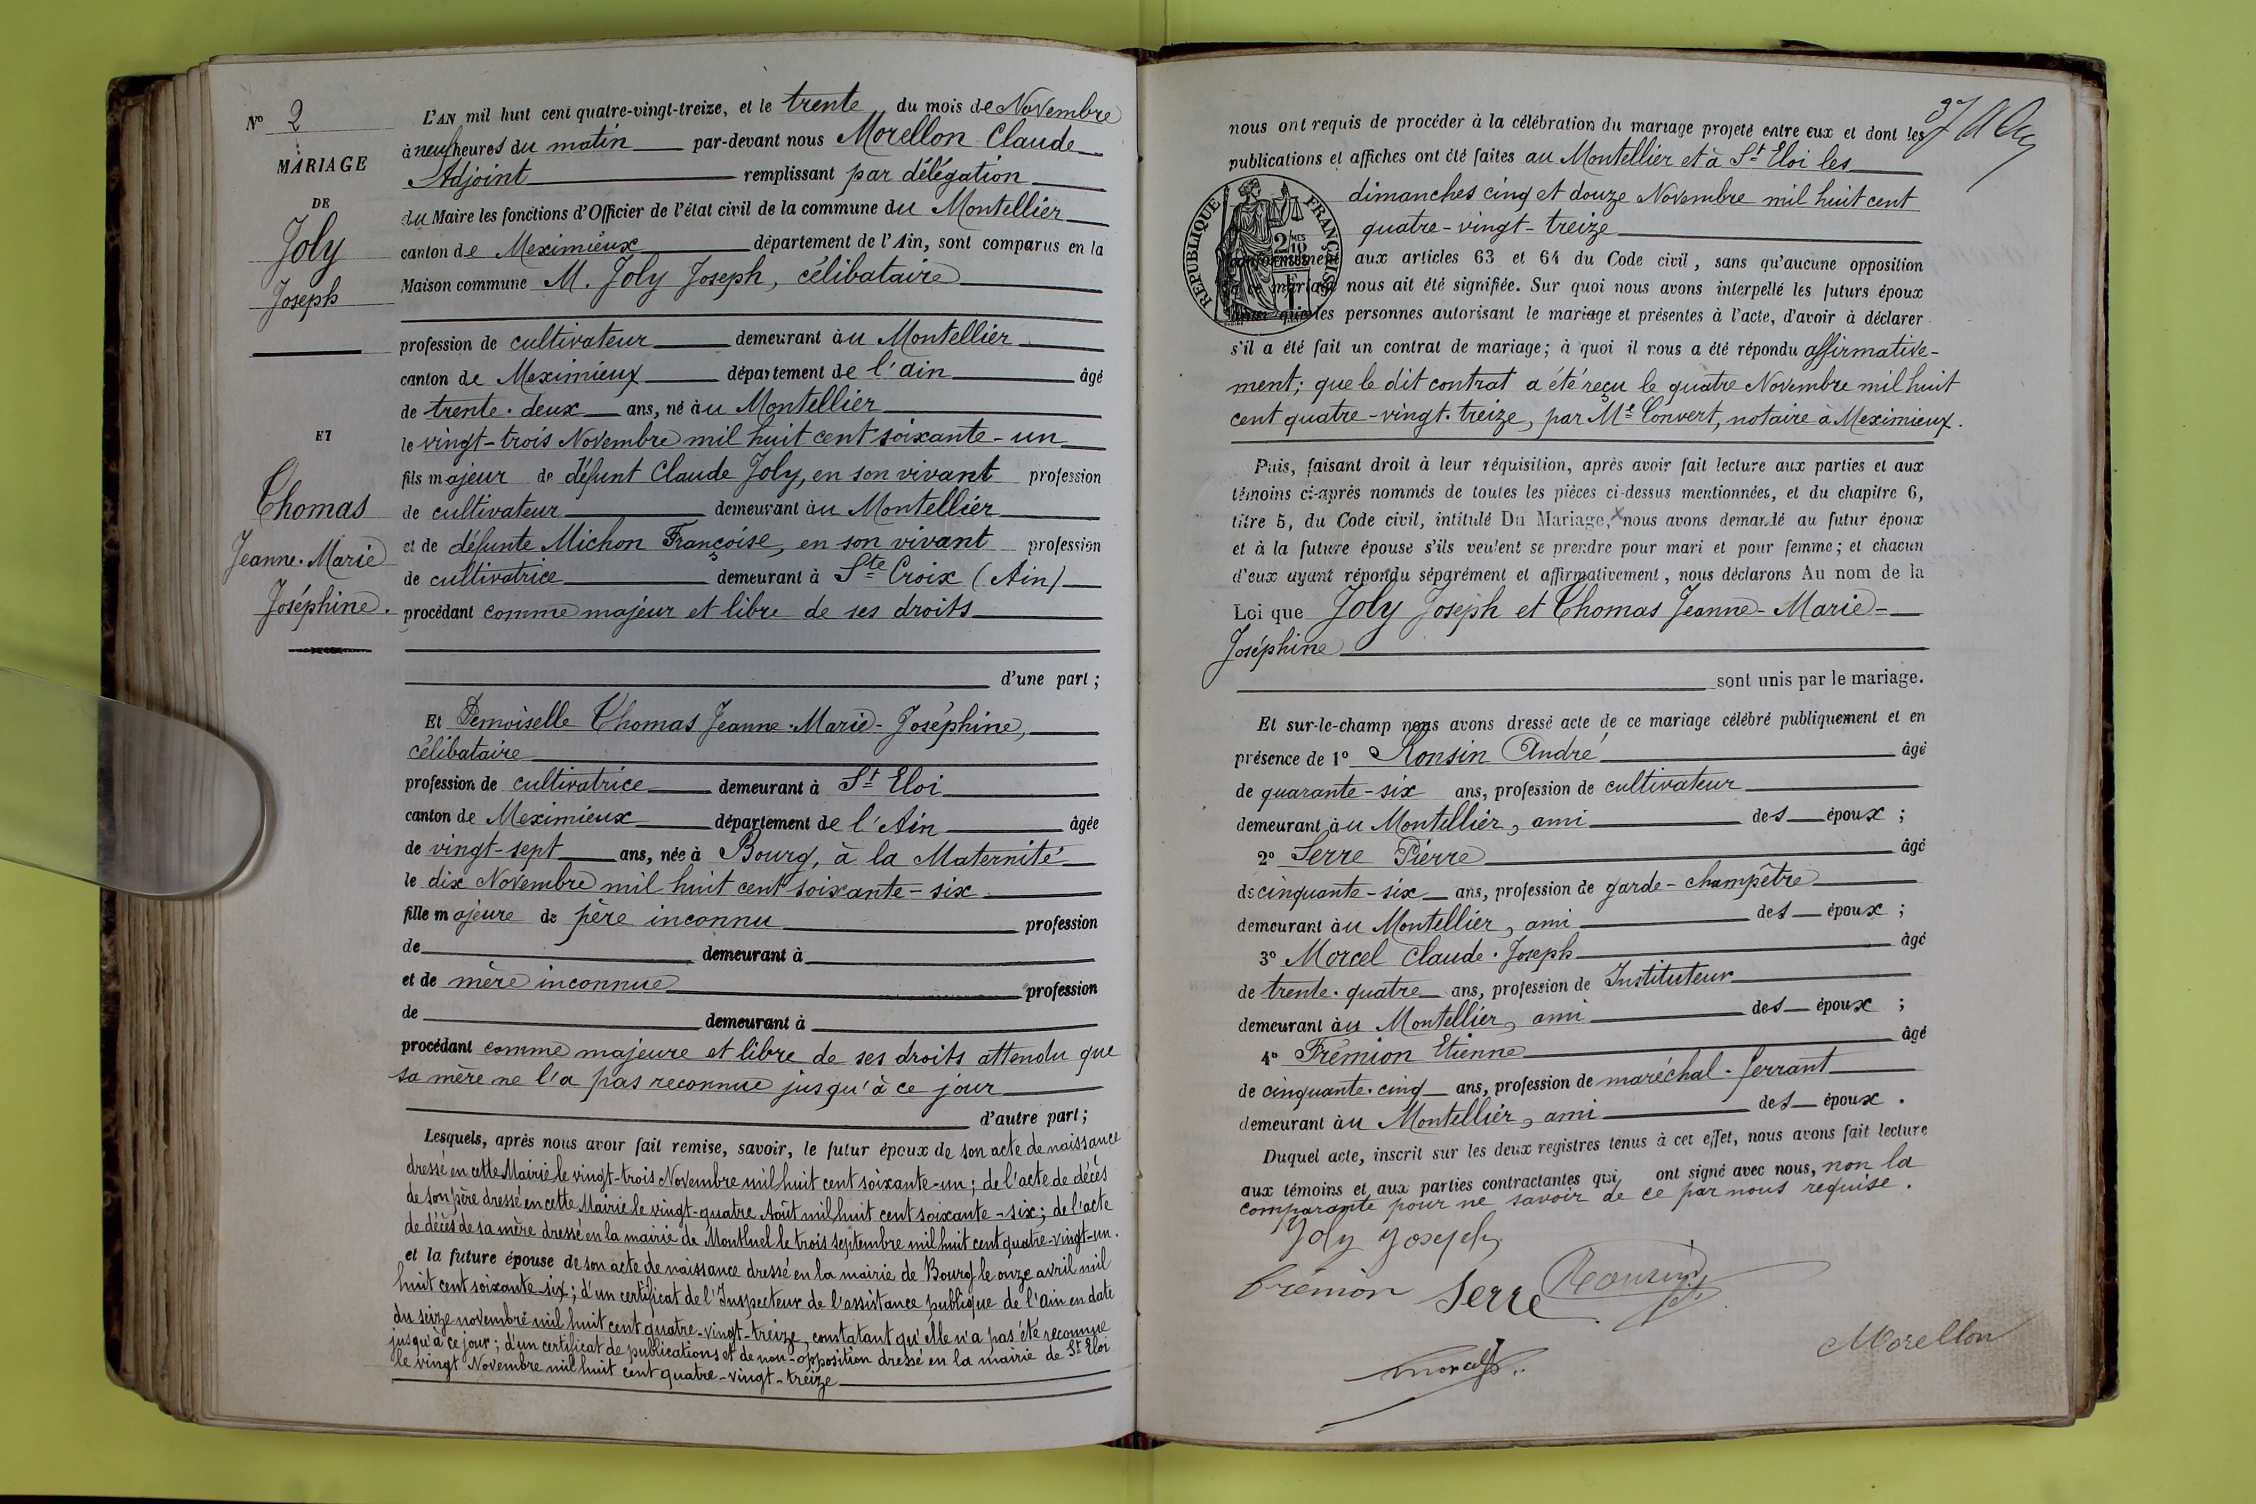 N° 2
MARIAGE
DE
Joly
Joseph
ET
Thomas
Jeanne-Marie
Joséphine.
L'AN mil huit cent quatre-vingt-treize, et le trente du mois de Novembre
à neuf heures du matin par-devant nous Morellon Claude
Adjoint remplissant par délégation
du Maire les fonctions d'Officier de l'état civil de la commune du Montellier
canton de Meximieux département de l'Ain, sont comparus en la
Maison commune M. Joly Joseph, célibataire
profession de cultivateur demeurant àu Montellier
canton de Meximieux département de l'ain âgé
de trente-deux ans, né àu Montellier
le vingt-trois Novembre mil huit cent soixante-un
fils majeur de défunt Claude Joly, en son vivant profession
de cultivateur demeurant àu Montellier
et de défunte Michon Françoise, en son vivant profession
de cultivatrice demeurant à Ste Croix (Ain)
procédant comme majeur et libre de ses droits
d'une part;
Et Demoiselle Thomas Jeanne-Marie-Joséphine,
célibataire
profession de cultivatrice demeurant à St Eloi
canton de Meximieux département de l'Ain âgée
de vingt-sept ans, née à Bourg, à la Maternité
le dix Novembre mil huit cent soixante-six
fille majeure de père inconnu profession
de demeurant à
et de mère inconnue profession
de demeurant à
procédant comme majeure et libre de ses droits attendu que
sa mère ne l'a pas reconnue jusqu'à ce jour
d'autre part;
Lesquels, après nous avoir fait remise, savoir, le futur époux de son acte de naissance
dressé en cette Mairie le vingt-trois Novembre mil huit cent soixante-un; de l'acte de décès
de son père dressé en cette Mairie le vingt-quatre Août mil huit cent soixante-six; de l'acte
de décès de sa mère dressé en la mairie de Montluel le trois septembre mil huit cent quatre-vingt-un.
et la future épouse de son acte de naissance dressé en la mairie de Bourg le onze avril mil
huit cent soixante-six; d'un certificat de l'Inspecteur de l'assistance publique de l'Ain en date
du seize novembre mil huit cent quatre-vingt-treize, constatant qu'elle n'a pas été reconnue
jusqu'à ce jour; d'un certificat de publications et de non-opposition dressé en la mairie de St Eloi
le vingt Novembre mil huit cent quatre-vingt-treize
37
nous ont requis de procéder à la célébration du mariage projeté entre eux et dont les
publications et affiches ont été faites au Montellier et à St Eloi les
dimanches cinq et douze Novembre mil huit cent
quatre-vingt-treize
RÉPUBLIQUE FRANÇAISE
2 MES
10
conformément aux articles 63 et 64 du Code civil, sans qu'aucune opposition
à ce mariage nous ait été signifiée. Sur quoi nous avons interpellé les futurs époux
ainsi que les personnes autorisant le mariage et présentes à l'acte, d'avoir à déclarer
s'il a été fait un contrat de mariage; à quoi il nous a été répondu affirmative-
ment; que le dit contrat a été reçu le quatre Novembre mil huit
cent quatre-vingt-treize, par Me Convert, notaire à Meximieux.
Puis, faisant droit à leur réquisition, après avoir fait lecture aux parties et aux
témoins ci-après nommés de toutes les pièces ci-dessus mentionnées, et du chapitre 6,
titre 5, du Code civil, intitulé Du Mariage, nous avons demandé au futur époux
et à la future épouse s'ils veulent se prendre pour mari et pour femme; et chacun
d'eux ayant répondu séparément et affirmativement, nous déclarons Au nom de la
Loi que Joly Joseph et Thomas Jeanne-Marie-
Joséphine
sont unis par le mariage.
Et sur-le-champ nous avons dressé acte de ce mariage célébré publiquement et en
présence de 1° Ronsin André âgé
de quarante-six ans, profession de cultivateur
demeurant àu Montellier, ami des époux;
2° Serre Pierre âgé
de cinquante-six ans, profession de garde-champêtre
demeurant àu Montellier, ami des époux;
3° Morcel Claude-Joseph âgé
de trente-quatre ans, profession de Instituteur
demeurant àu Montellier, ami des époux;
4° Frémion Etienne âgé
de cinquante-cinq ans, profession de maréchal-ferrant
demeurant àu Montellier, ami des époux.
Duquel acte, inscrit sur les deux registres tenus à cet effet, nous avons fait lecture
aux témoins et aux parties contractantes qui ont signé avec nous, non la
comparante pour ne savoir de ce par nous requise.
Joly Joseph
frémion Serre Ronsin
Morcel
Morellon